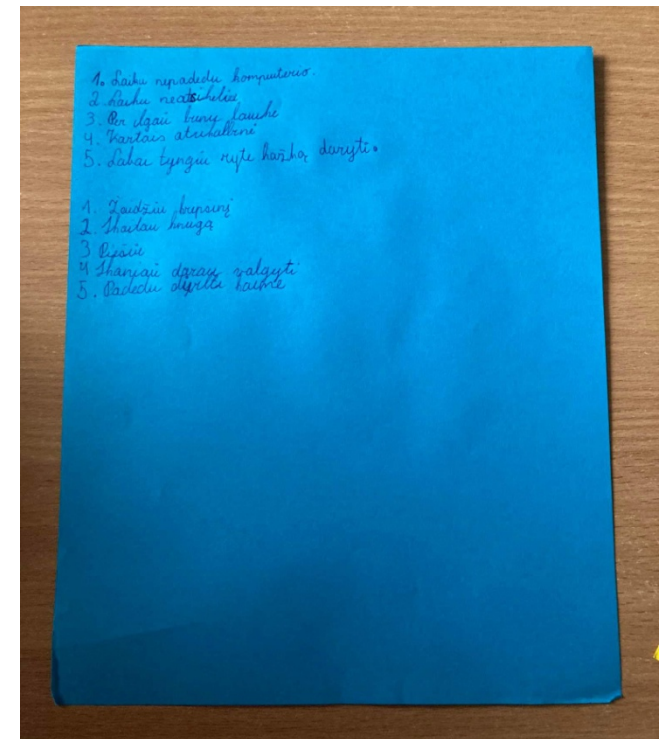 1. Laiku nepadedu kompiuterio.
2 Laiku neatsikeliu
3. Per ilgai bunu lauke
4. Kartais atsikalbinė
5. Labai tyngiu ryte kažką daryti.
1. Žaidžiu krepsinį
2. Skaitau knygą
3 Piešiu
4 Skaniai darau valgyti
5. Padedu dyrbti kaime